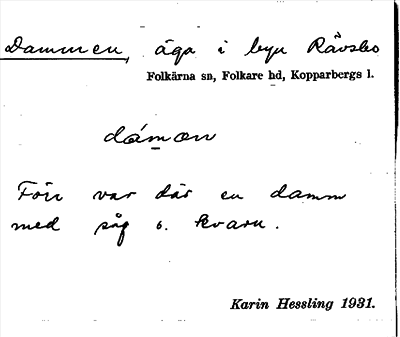 Dammen, äga i byn Rävsbo
Folkärna sn, Folkare hd, Kopparbergs l.
dámon
Förr var där en damm
med såg o. kvarn.
Karin Hessling 1931.